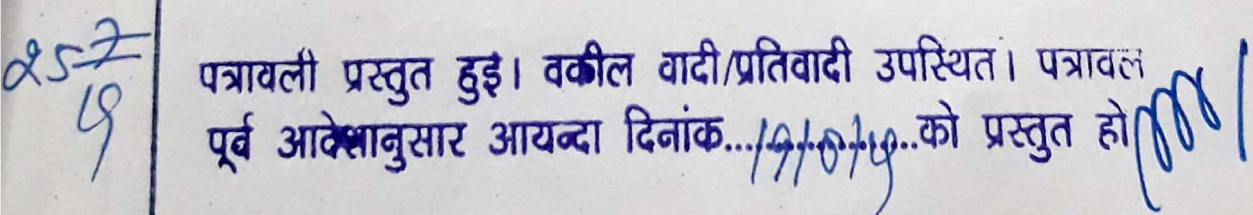 पत्रावली प्रस्तुत हुई। वकील वादी/प्रतिवादी उपस्थित। पत्रावल
पूर्व आदेशानुसार आयन्दा दिनांक....को प्रस्तुत हो